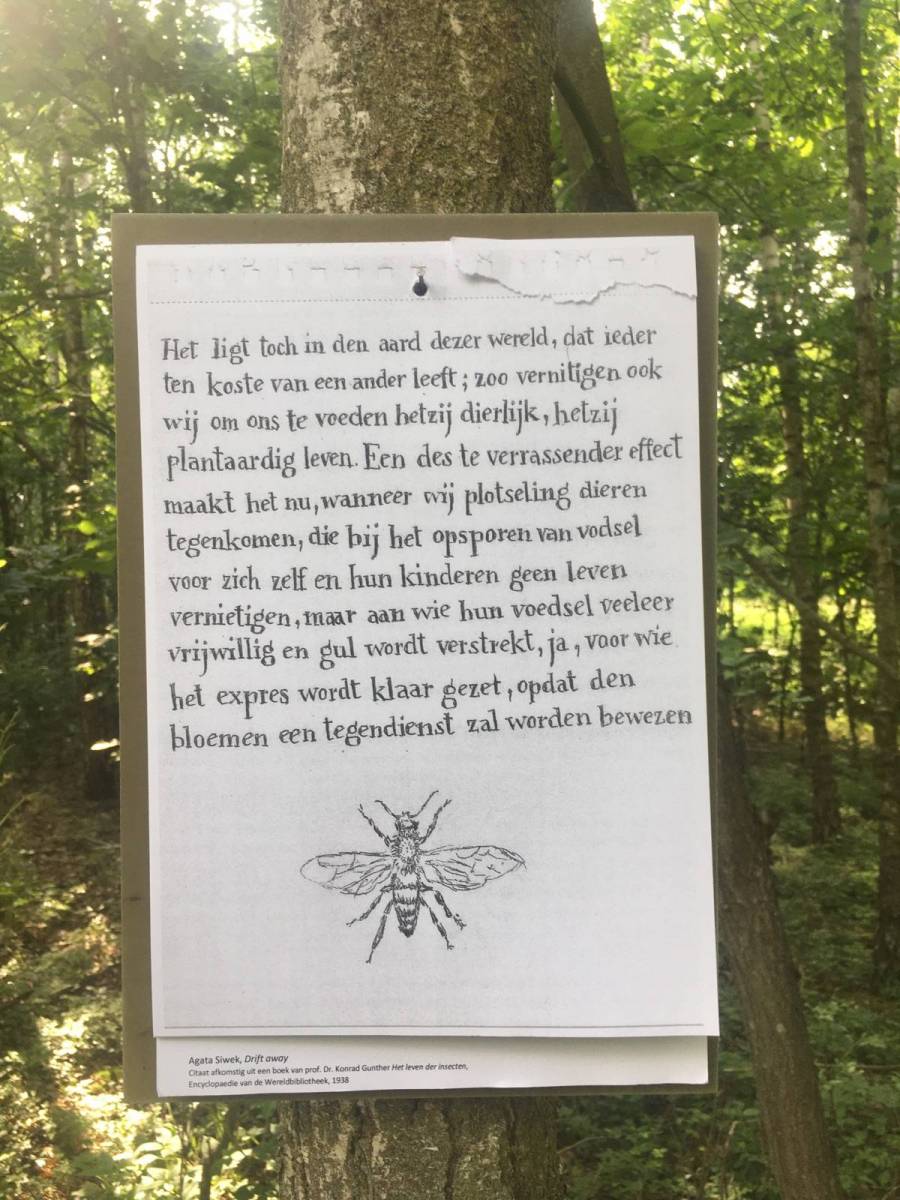 Het ligt toch in den aard dezer wereld, dat ieder
ten koste van een ander leeft; zoo vernitigen ook
wij om ons te voeden hetzij dierlijk, hetzij
plantaardig leven. Een des te verrassender effect
maakt het nu, wanneer wij plotseling dieren
tegenkomen, die bij het opsporen van vodsel
voor zich zelf en hun kinderen geen leven
vernietigen, maar aan wie hun voedsel veeleer
vrijwillig en gul wordt verstrekt, ja, voor wie
het expres wordt klaar gezet, opdat den
bloemen een tegendienst zal worden bewezen
Agata Siwek, Drift away
Citaat afkomstig uit een boek van prof. Dr. Konrad Gunther Het leven der insecten,
Encyclopaedie van de Wereldbibliotheek, 1938